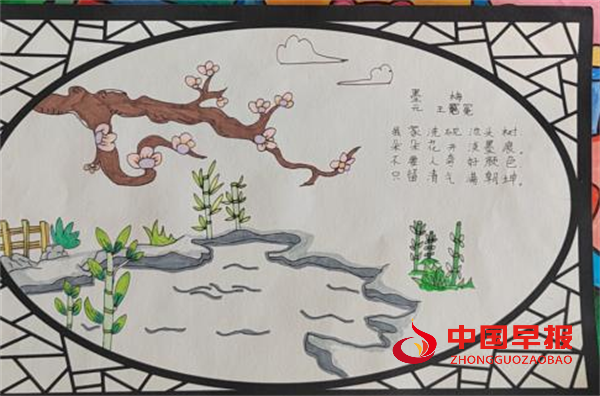 墨 梅
元 王冕
我家洗砚池头树,
朵朵花开淡墨痕.
不要人夸好颜色
只留清气满乾坤.
中国早报
ZHONGGUOZAOBAO